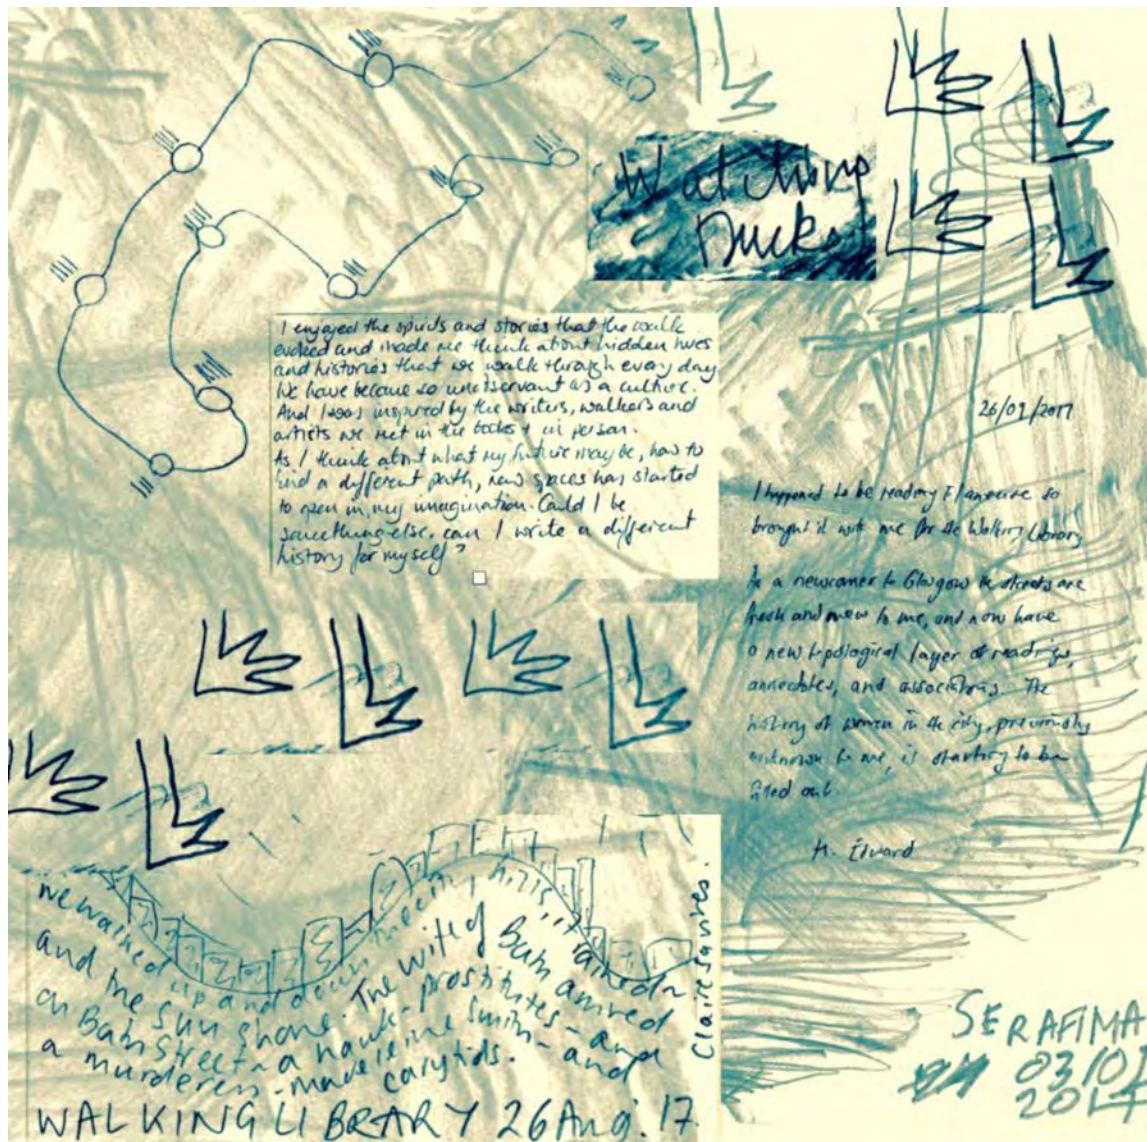 Watching
Ducks
I enjoyed the spirits and stories that the walk
evoked and made me think about hidden lives
and histories that we walk through every day.
We have become so unobservant as a culture.
And I was inspired by the writers, walkers and
artists we met in the books + in person.
As I think about what my future may be, how to
find a different path, new spaces has started
to open in my imagination. Could I be
something else, can I write a different
history for myself?
26/09/2017
I happened to be reading Flaneuse so
brought it with me for the Walking Library
As a newcomer to Glasgow the streets are
fresh and new to me, and now have
a new topological layer of readings,
annecdotes, and associations. The
history of women in the city, previously
unknown to me, is starting to be
filled out.
H. Edward
we walked up and down meeting hills, it rained
and the sun shone. The wife of Bath arrived
on Bath Street - a hawk - prostitutes - and
a murderess - madeleine Smith - and
carytids.
Claire
WALKING LIBRARY 26 Aug. 17.
SERAFIMA